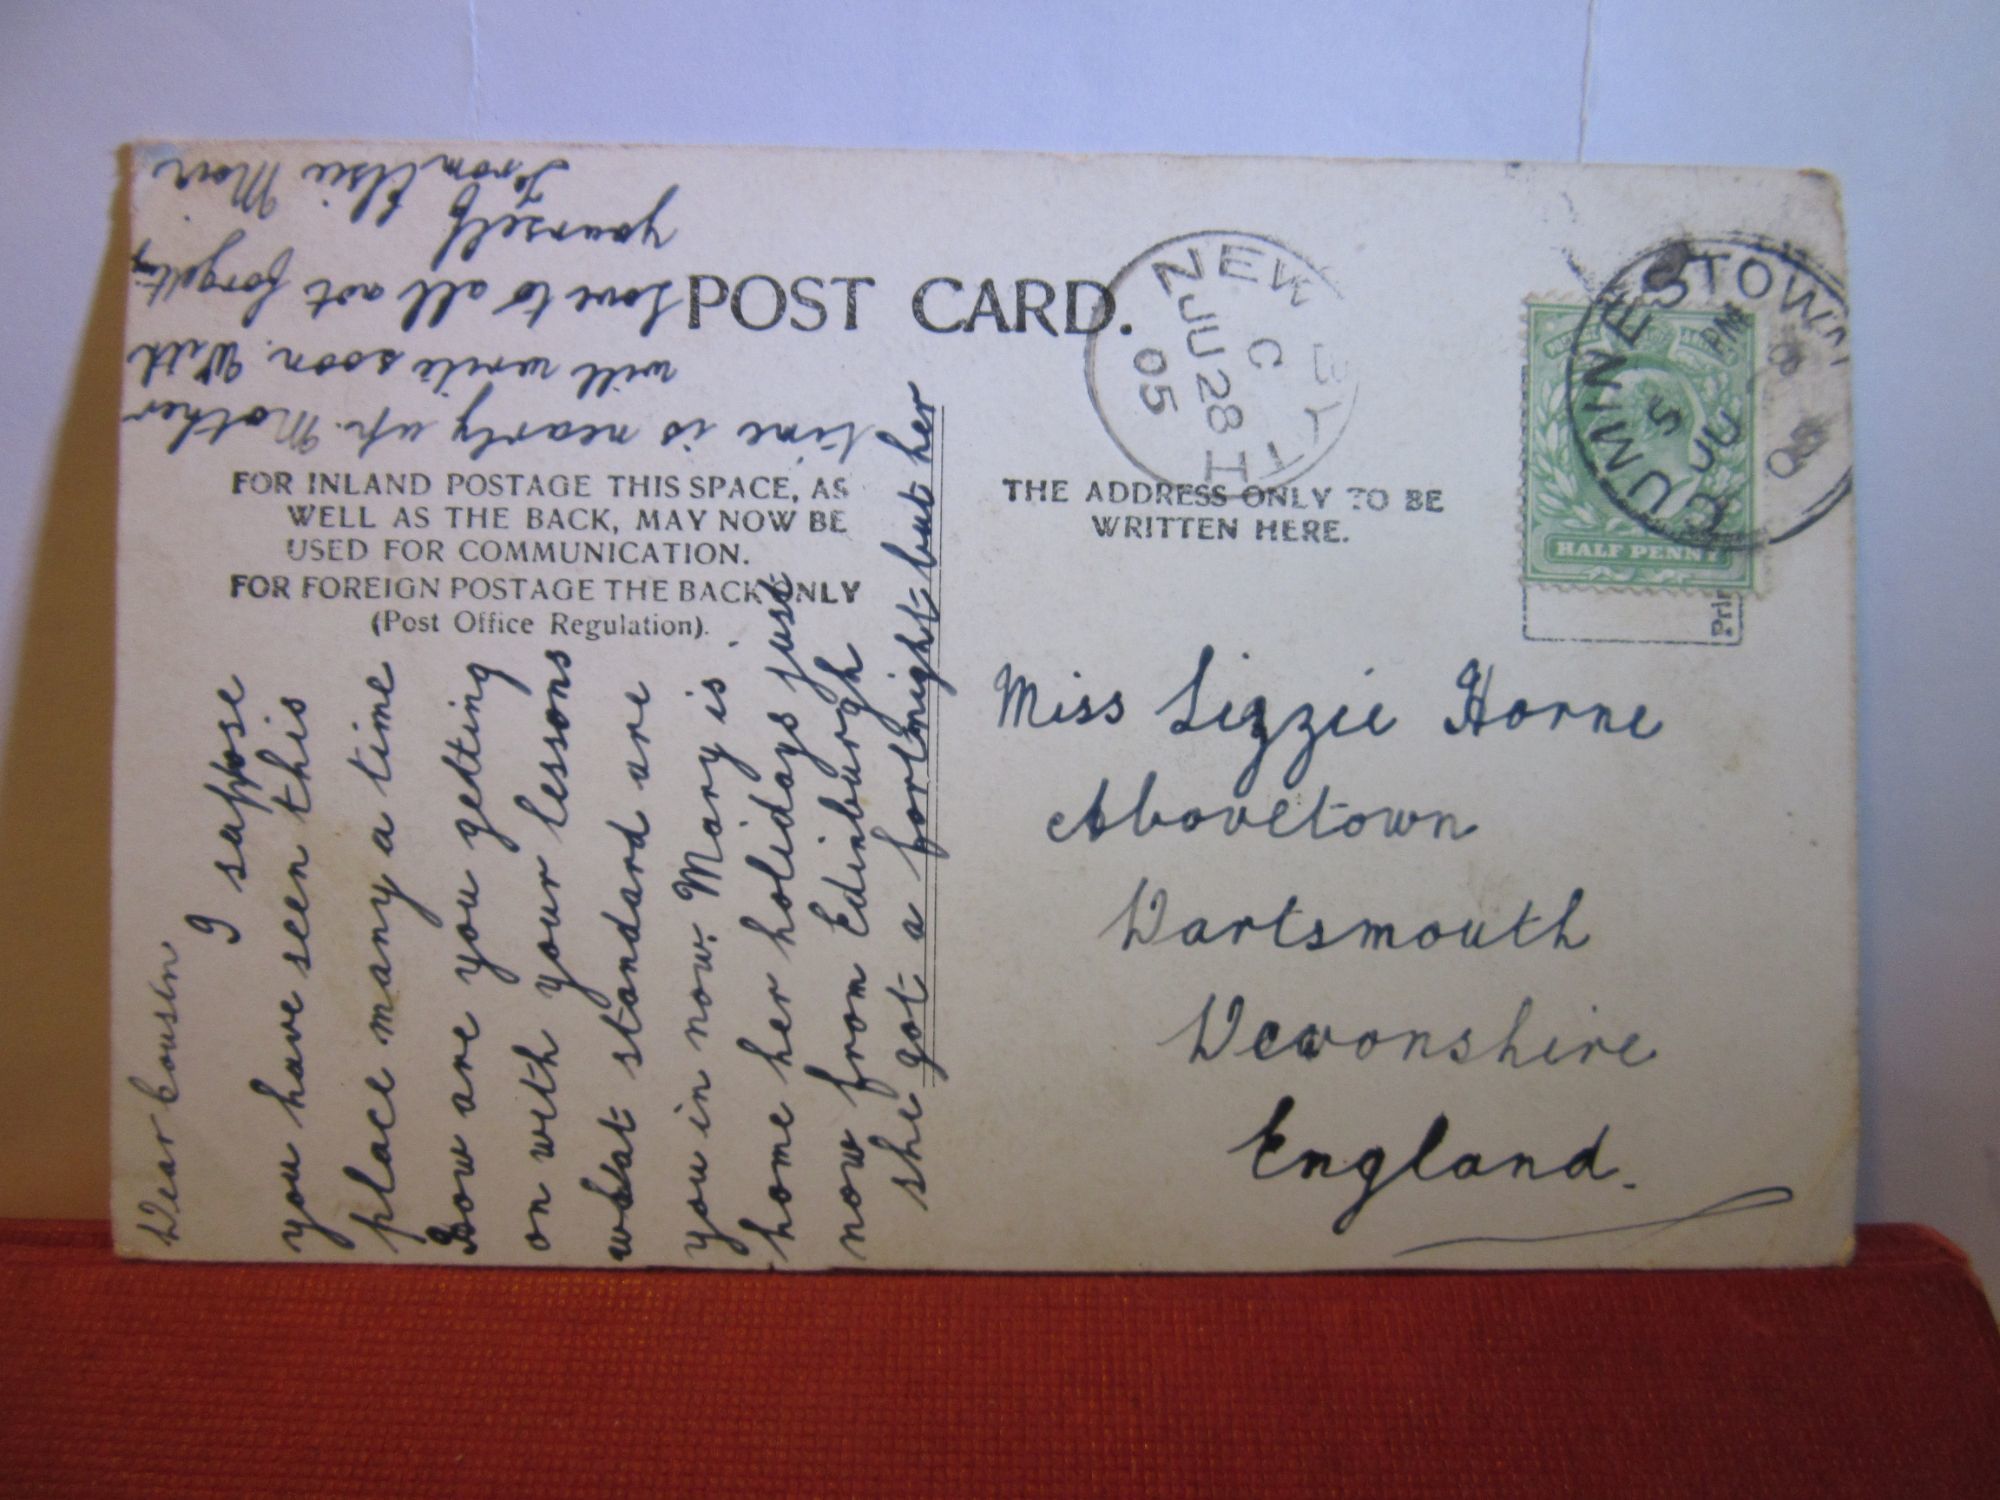 POST CARD.
FOR INLAND POSTAGE THIS SPACE, AS
WELL AS THE BACK, MAY NOW BE
USED FOR COMMUNICATION.
FOR FOREIGN POSTAGE THE BACK ONLY
(Post Office Regulation).
THE ADDRESS ONLY TO BE
WRITTEN HERE.
NEW
C
JU 28
05
CUMINESTOWN
5 PM
JU
HALF PENNY
Miss Lizzie Horne
Abovetown
Dartsmouth
Devonshire
England.
Dear Cousin
I suppose
you have seen this
place many a time
How are you getting
on with your lessons
what standard are
you in now. Mary is
home her holidays just
now from Edinburgh
she got a fortnight but her
time is nearly up. Mother
will write soon. With
love to all not forgetting
yourself
From Elsie Moir